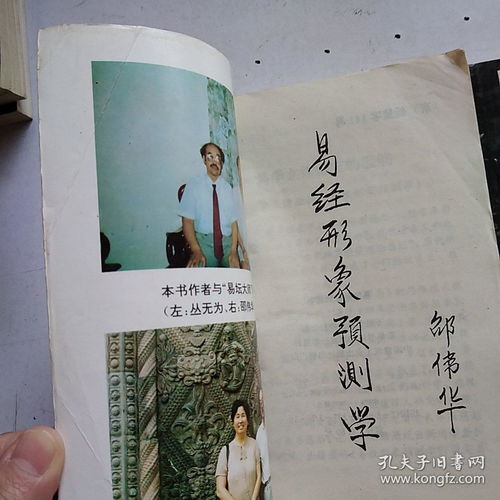 本书作者与"易坛大师
(左:丛无为、右:邵伟华
易经形象预测学
邵伟华
孔夫子旧书网
www.kongfz.com